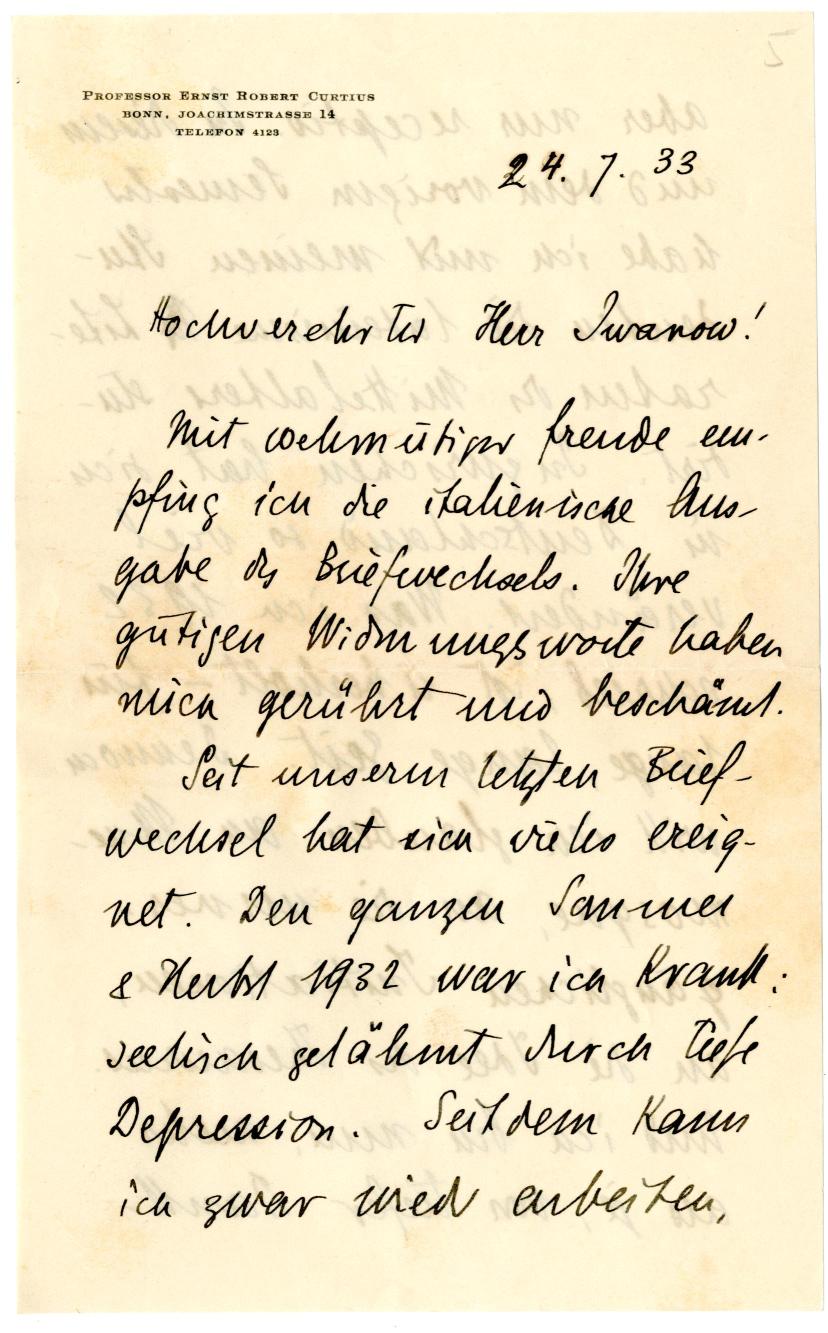 PROFESSOR ERNST ROBERT CURTIUS
BONN, JOACHIMSTRASSE 14
TELEFON 4123
24. 7. 33
Hochverehrter Herr Iwanow!
Mit wehmütiger Freude em-
pfing ich die italienische Aus-
gabe des Briefwechsels. Ihre
gütigen Widmungsworte haben
mich gerührt und beschämt.
Seit unserm letzten Brief-
wechsel hat sich vieles ereig-
net. Den ganzen Sommer
& Herbst 1932 war ich krank:
seelisch gelähmt durch tiefe
Depression. Seitdem kann
ich zwar wieder arbeiten,